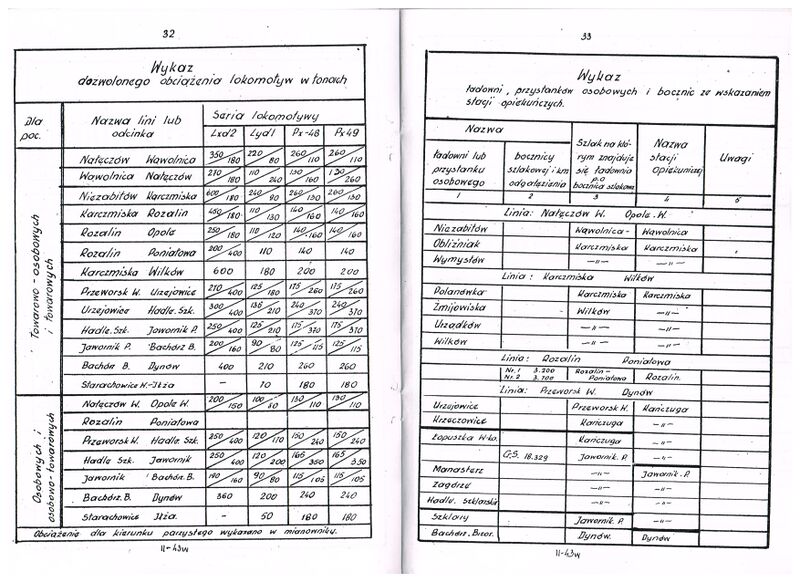 32
Wykaz
dozwolonego obciążenia lokomotyw w tonach
Dla poc.
Nazwa lini lub odcinka
Seria lokomotywy
Lxd2 Lyd1 Px-48 Px49
Towarowo-osobowych i towarowych
Nałęczów Wąwolnica 350/180 220/80 260/110 260/110
Wąwolnica Nałęczów 210/180 110/240 130/160 130/260
Niezabitów Karczmiska 600/180 240/90 260/130 200/130
Karczmiska Rozalin 450/180 110/130 140/160 140/160
Rozalin Opole 250/180 110/120 140/160 140/160
Rozalin Poniatowa 200/400 110 140 140
Karczmiska Wilków 600 180 200 200
Przeworsk W. Urzejowice 210/400 125/180 175/260 175/260
Urzejowice Hadle. Szk. 300/400 136/210 240/370 240/370
Hadle. Szk. Jawornik P. 250/400 125/210 175/370 175/370
Jawornik P. Bachórz B. 200/160 90/80 125/115 125/115
Bachórz B. Dynów 400 210 260 260
Starachowice W.-Iłża - 70 180 180
Osobowych i osobowo-towarowych
Nałęczów W. Opole W. 200/150 100/80 130/110 130/110
Rozalin Poniatowa
Przeworsk W. Hadle. Szk. 250/400 120/170 150/240 150/240
Hadle Szk. Jawornik 250/400 120/200 165/350 165/350
Jawornik Bachórz B. 190/160 90/80 115/105 115/105
Bachórz. B. Dynów 360 200 240 240
Starachowice Iłża. - 50 180 180
Obciążenie dla kierunku parzystego wykazano w mianowniku.
11-43w
33
Wykaz
ładowni, przystanków osobowych i bocznic ze wskazaniem
stacji opiekuńczych.
Nazwa
ładowni lub przystanku osobowego
bocznicy szlakowej i km odgałęzienia
Szlak na którym znajduje się ładownia p.o bocznica szlakowa
Nazwa stacji opiekuńczej
Uwagi
1 2 3 4 5
Linia: Nałęczów W. Opole. W.
Niezabitów Wąwolnica- Wąwolnica
Obliźniak Karczmiska Karczmiska
Wymysłów —„— —„—
Linia: Karczmiska Wilków
Polanówka Karczmiska Karczmiska
Żmijowiska Wilków —„—
Urządków —„— —„—
Wilków —„— —„—
Linia: Rozalin Poniatowa
Nr. 1 3.200 Rozalin-
Nr. 2 3.700 Poniatowa Rozalin.
Linia: Przeworsk W. Dynów
Urzejowice Przeworsk W. Kańczuga
Krzeczowice Kańczuga —„—
Łopuszka W-ka. Kańczuga —„—
G.S. 18.329 Jawornik. P. —„—
Manasterz —„— Jawornik. P.
Zagórze —„— —„—
Hadle. Szklarskie —„— —„—
Szklary Jawornik P. —„—
Bachórz. Dynów. Dynów
11-43w